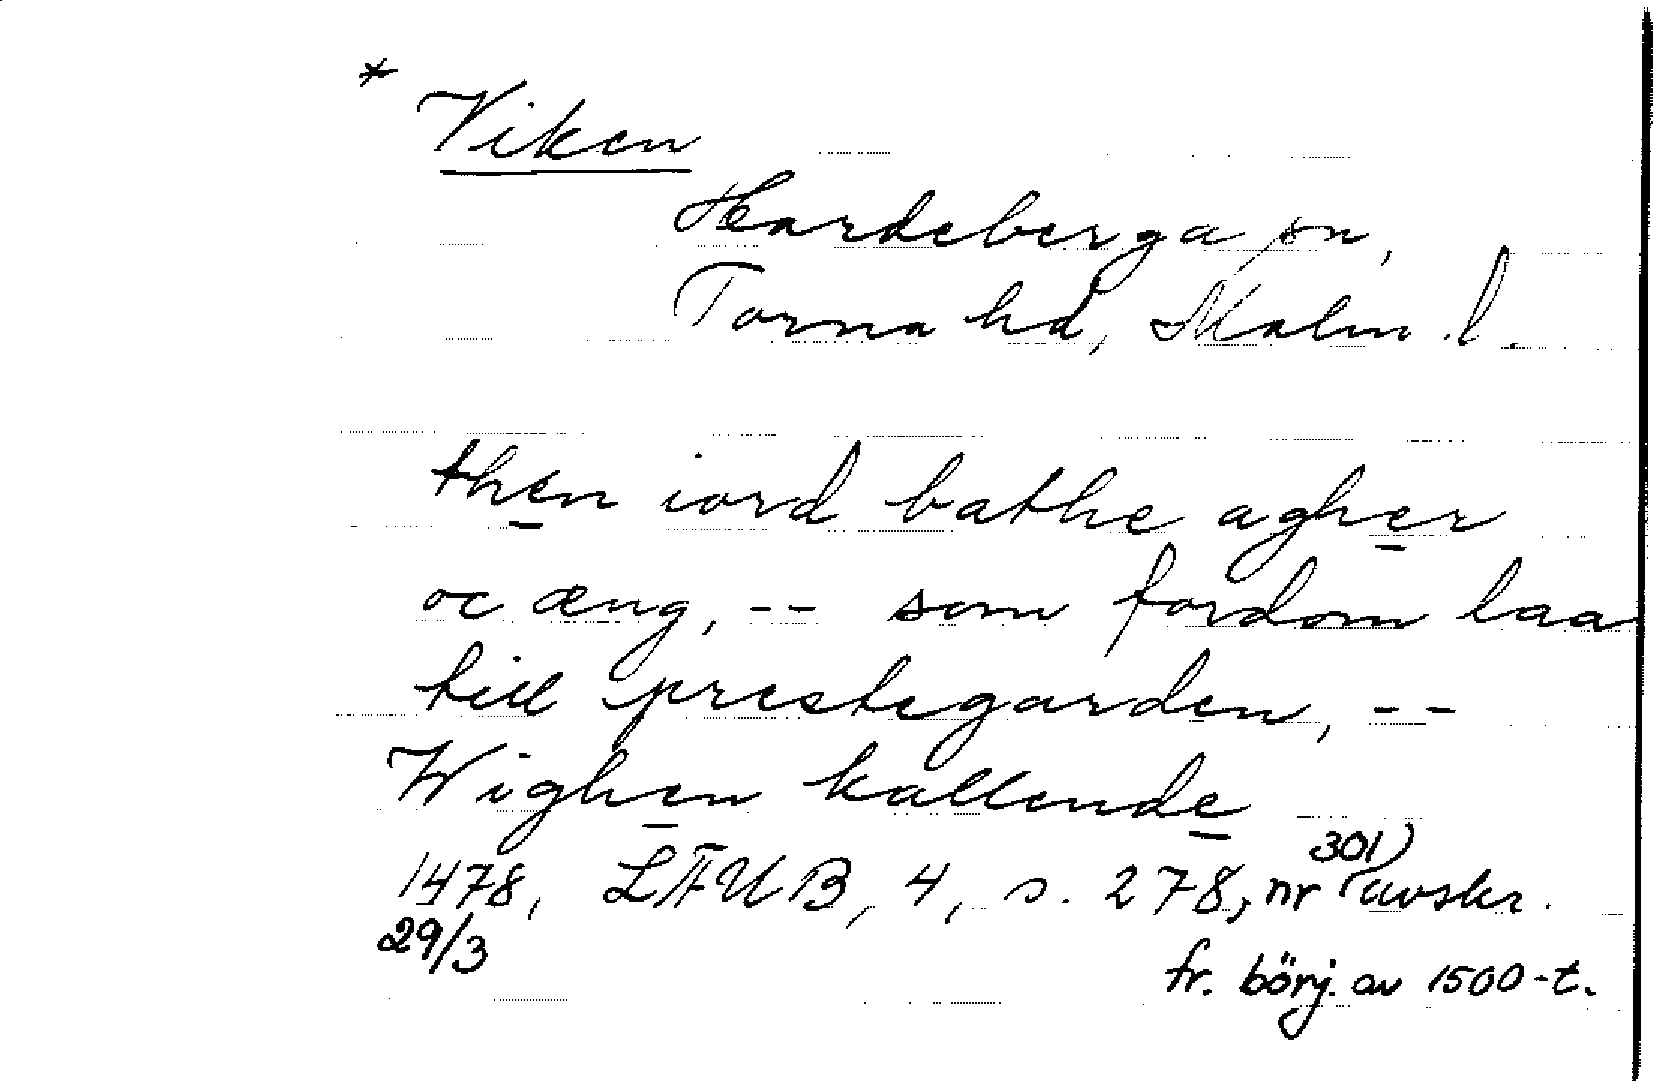 * Viken
Hardeberga sn,
Torna hd, Malm. l.
then iord bathe agher
oc æng, -- som fordom laa
till prestegarden, --
Wighen kallende
1478, LÄUB, 4, s. 278, nr 301) avskr.
29/3
fr. börj. av 1500-t.